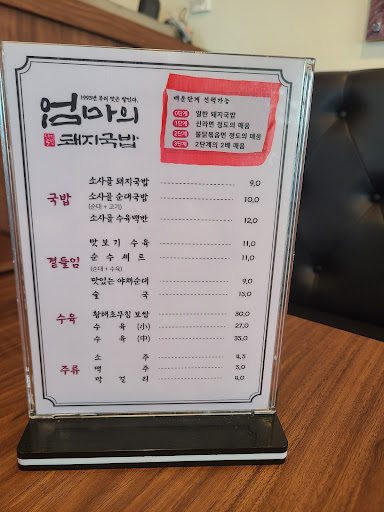 1995년 부터 맛은 말한다.
엄마의
돼지국밥
매운단계 선택가능
0단계 일반 돼지국밥
1단계 신라면 정도의 매움
2단계 불닭볶음면 정도의 매움
3단계 2단계의 2배 매움
국밥
소사골 돼지국밥 9,0
소사골 순대국밥 10,0
(순대 + 고기)
소사골 수육백반 12,0
곁들임
맛보기 수육 11,0
순수세트 11,0
(순대 + 수육)
맛있는 야채순대 9,0
술국 15,0
수육
황해초무침 보쌈 30,0
수육 (小) 27,0
수육 (中) 35,0
주류
소주 4,5
맥주 5,0
막걸리 4,0